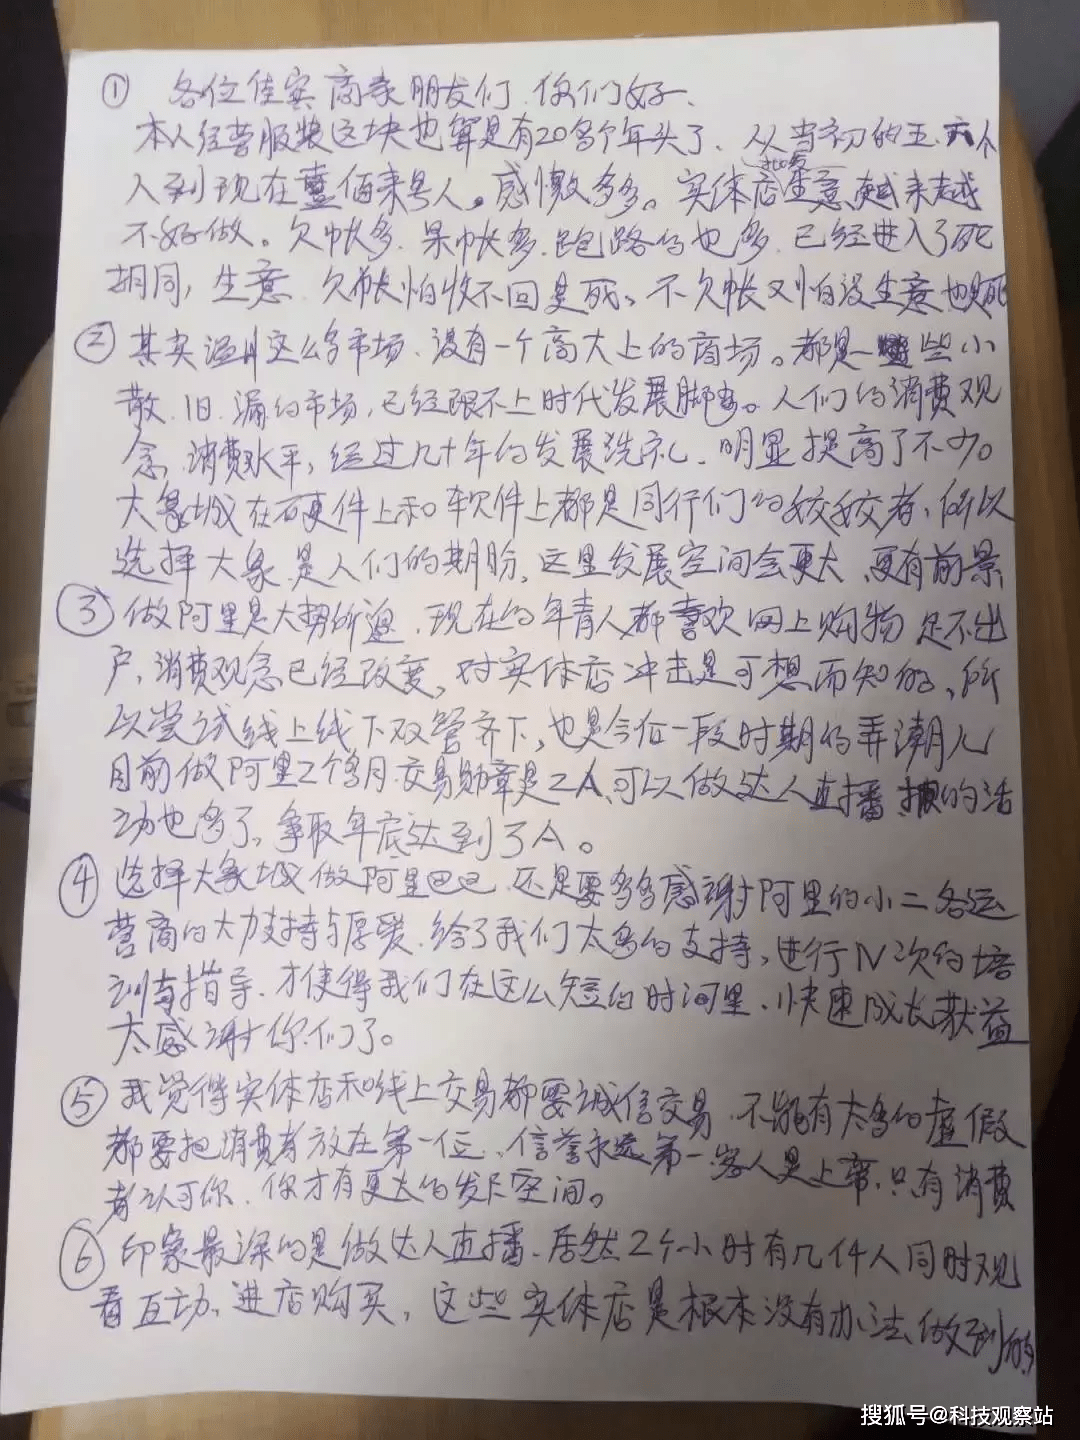 ① 各位佳宾商家朋友们、你们好、
本人经营服装这块也算是有20多个年头了、从当初的五、六个
人到现在壹佰来号人。感慨多多。实体店生意越来越
不好做。欠帐多、呆帐多、跑路的也多、已经进入了死
胡同，生意、欠帐怕收不回是死。不欠帐又怕没生意也是死
② 其实温州这么多市场、没有一个高大上的商场。都是一些小
散、旧、漏的市场，已经跟不上时代发展脚步。人们的消费观
念、消费水平，经过几十年的发展洗礼、明显提高了不少。
大象城在硬件上和软件上都是同行们的姣姣者、所以
选择大象是人们的期盼，这里发展空间会更大、更有前景
③ 做阿里是大势所迫、现在的年青人都喜欢网上购物足不出
户，消费观念已经改变，对实体店冲击是可想而知的，所
以尝试线上线下双管齐下，也是今后一段时期的弄潮儿
目前做阿里2个多月交易勋章是2A、可以做达人直播、的活
动也多了，争取年底达到3A。
④ 选择大象城做阿里巴巴、还是要多多感谢阿里的小二各运
营商的大力支持与厚爱、给了我们太多的支持，进行N次的培
训与指导、才使得我们在这么短的时间里、快速成长获益
太感谢你们了。
⑤ 我觉得实体店和线上交易都要诚信交易、不能有太多的虚假
都要把消费者放在第一位、信誉永远第一客人是上帝，只有消费
者认可你、你才有更大的发展空间。
⑥ 印象最深的是做达人直播、居然2个小时有几仟人同时观
看互动，进店购买，这些实体店是根本没有办法做到的
搜狐号@科技观察站